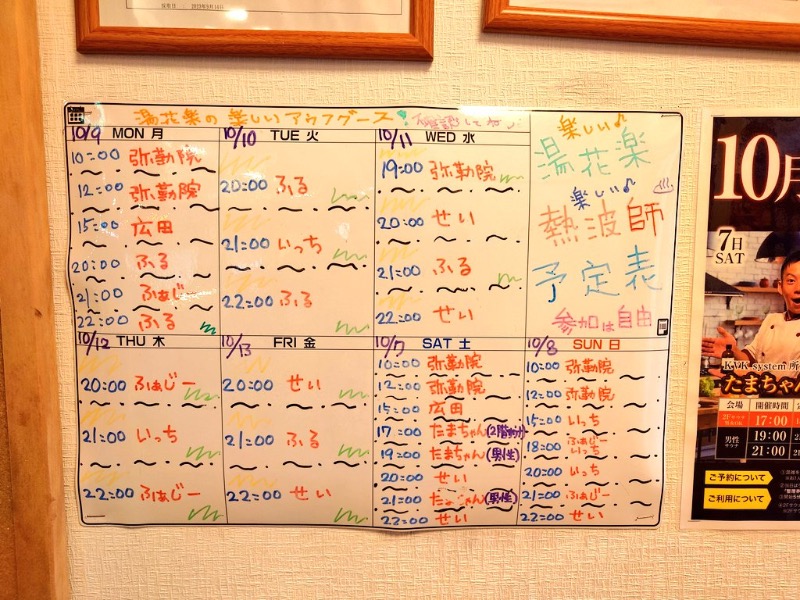 湯花楽の楽しいアウフグース
10/9 MON 月
10:00 弥勒院
12:00 弥勒院
15:00 広田
20:00 ふる
21:00 ふぁじー
22:00 ふる
10/10 TUE 火
20:00 ふる
21:00 いっち
22:00 ふる
10/11 WED 水
19:00 弥勒院
20:00 せい
21:00 ふる
22:00 せい
楽しい♪
湯花楽
楽しい♪
熱波師
予定表
参加は自由
10/12 THU 木
20:00 ふぁじー
21:00 いっち
22:00 ふぁじー
10/13 FRI 金
20:00 せい
21:00 ふる
22:00 せい
10/7 SAT 土
10:00 弥勒院
12:00 弥勒院
15:00 広田
17:00 たまちゃん
19:00 たまちゃん (男性)
20:00 せい
21:00 たまちゃん (男性)
22:00 せい
10/8 SUN 日
10:00 弥勒院
12:00 弥勒院
15:00 いっち
18:00 ふぁじー
いっち
20:00 いっち
21:00 ふぁじー
22:00 せい
10月
7日
SAT
KYK system
たまちゃん
会場 開催時間
17:00
男性 19:00
21:00
ご予約について
ご利用について